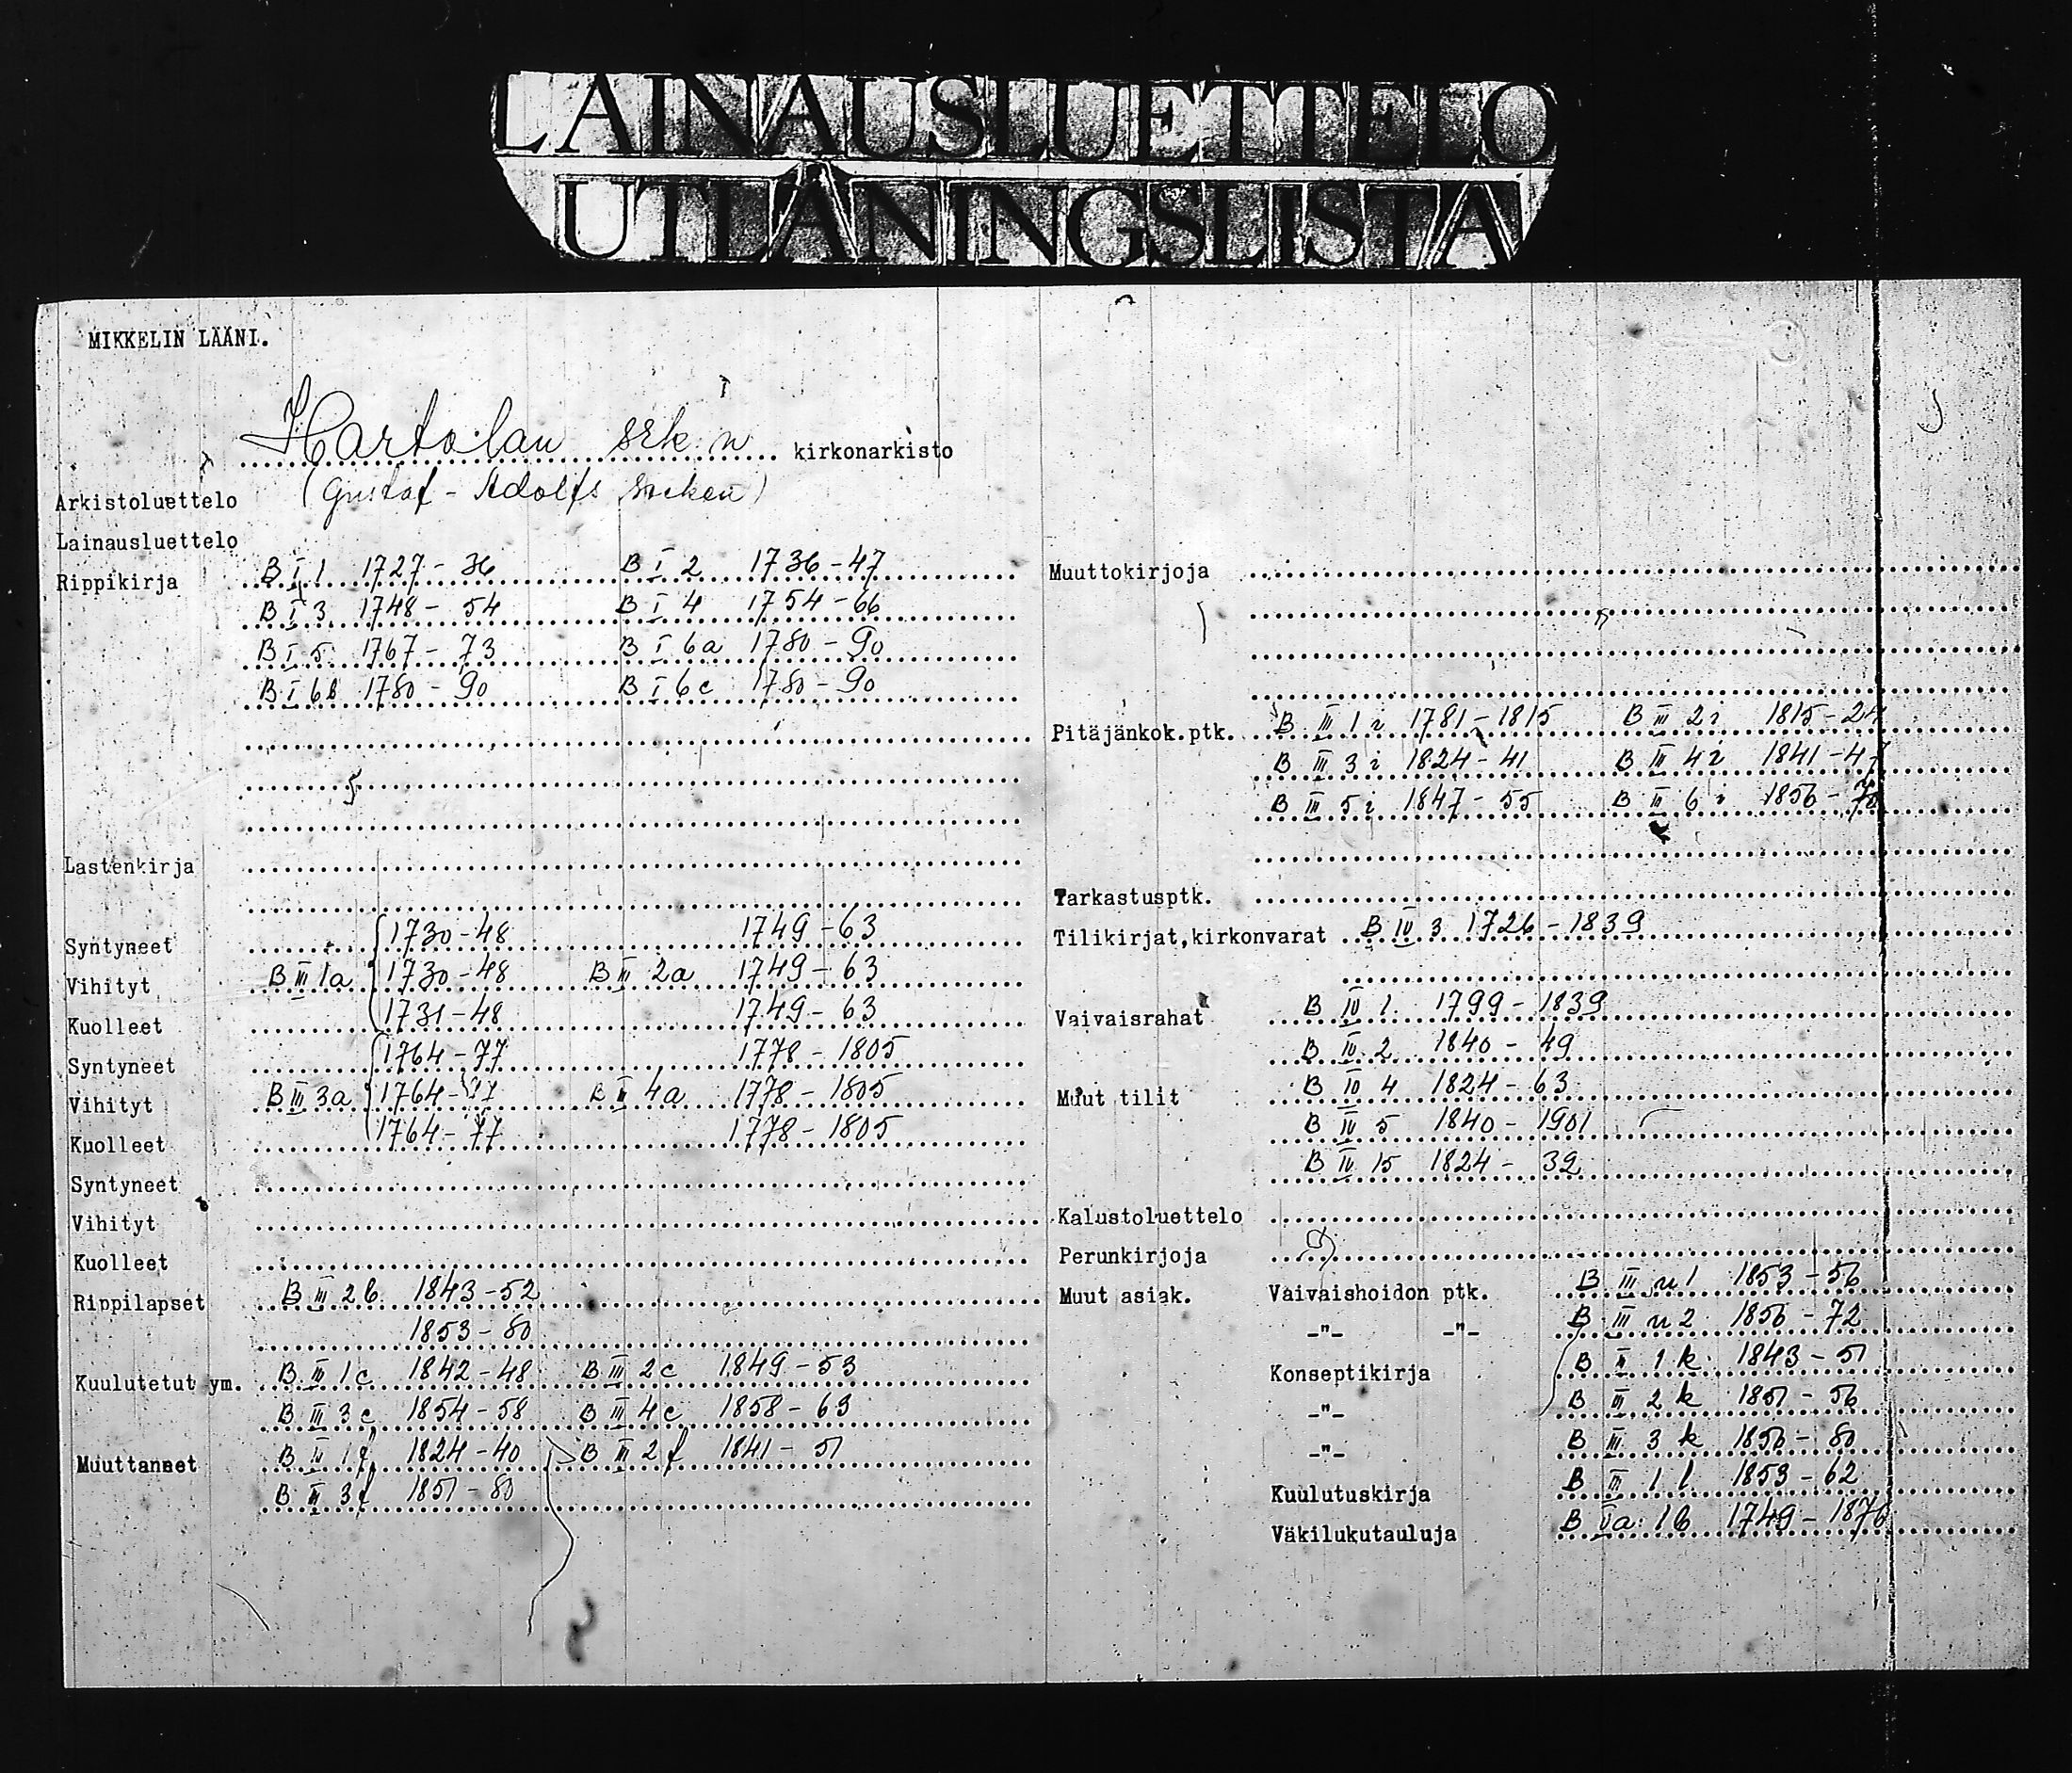 LAINAUSLUETTELO
UTLÅNINGSLISTA
MIKKELIN LÄÄNI.
Hartolan srk:n kirkonarkisto
Arkistoluettelo (Gustaf-Adolfs socken)
Lainausluettelo
Rippikirja B I 1 1727-36 B I 2 1736-47
B I 3 1748-54 B I 4 1754-66
B I 5 1767-73 B I 6a 1780-90
B I 6b 1780-90 B I 6c 1780-90
Lastenkirja
Syntyneet 1730-48 1749-63
Vihityt B III 1a 1730-48 B III 2a 1749-63
Kuolleet 1731-48 1749-63
Syntyneet 1764-77 1778-1805
Vihityt B III 3a 1764-77 B II 4a 1778-1805
Kuolleet 1764-77 1778-1805
Syntyneet
Vihityt
Kuolleet
Rippilapset B III 2b 1843-52
1853-80
Kuulutetut ym. B III 1c 1842-48 B III 2c 1849-53
B III 3c 1854-58 B III 4c 1858-63
Muuttaneet B III 1f 1824-40 B III 2f 1841-51
B III 3f 1851-80
Muuttokirjoja
Pitäjänkok.ptk. B III 1i 1781-1815 B III 2i 1815-24
B III 3i 1824-41 B III 4i 1841-47
B III 5i 1847-55 B III 6i 1856-
Tarkastusptk.
Tilikirjat,kirkonvarat B IV 3 1726-1839
Vaivaisrahat B IV 1 1799-1839
B IV 2 1840-49
Muut tilit B IV 4 1824-63
B IV 5 1840-1901
B IV 15 1824-32
Kalustoluettelo
Perunkirjoja
Muut asiak. Vaivaishoidon ptk. B III n1 1853-56
-"- -"- B III n2 1856-72
Konseptikirja B II 1k 1843-51
-"- B III 2k 1851-56
-"- B III 3k 1856-80
Kuulutuskirja B III 1l 1853-62
Väkilukutauluja B Va:1b 1749-1876